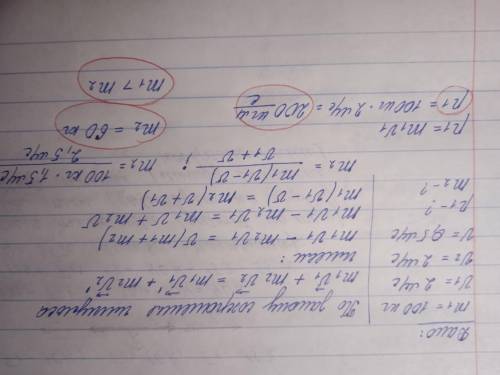 Дано:
m₁ = 100 кг
v₁ = 2 м/с
v₂ = 2 м/с
v = 0,5 м/с
p₁ - ?
m₂ - ?
По закону сохранение импульса
m₁v⃗₁ + m₂v⃗₂ = m₁v⃗₁' + m₂v⃗₂'
имеем:
m₁v₁ - m₂v₁ = v(m₁+m₂)
m₁v₁ - m₂v₁ = m₁v + m₂v
m₁(v₁ - v) = m₂(v + v₁)
m₂ = m₁(v₁-v) / v₁+v ; m₂ = 100 кг · 1,5 м/с / 2,5 м/с
m₂ = 60 кг
m₁ > m₂
p₁ = m₁v₁
p₁ = 100 кг · 2 м/с = 200 кг м/с